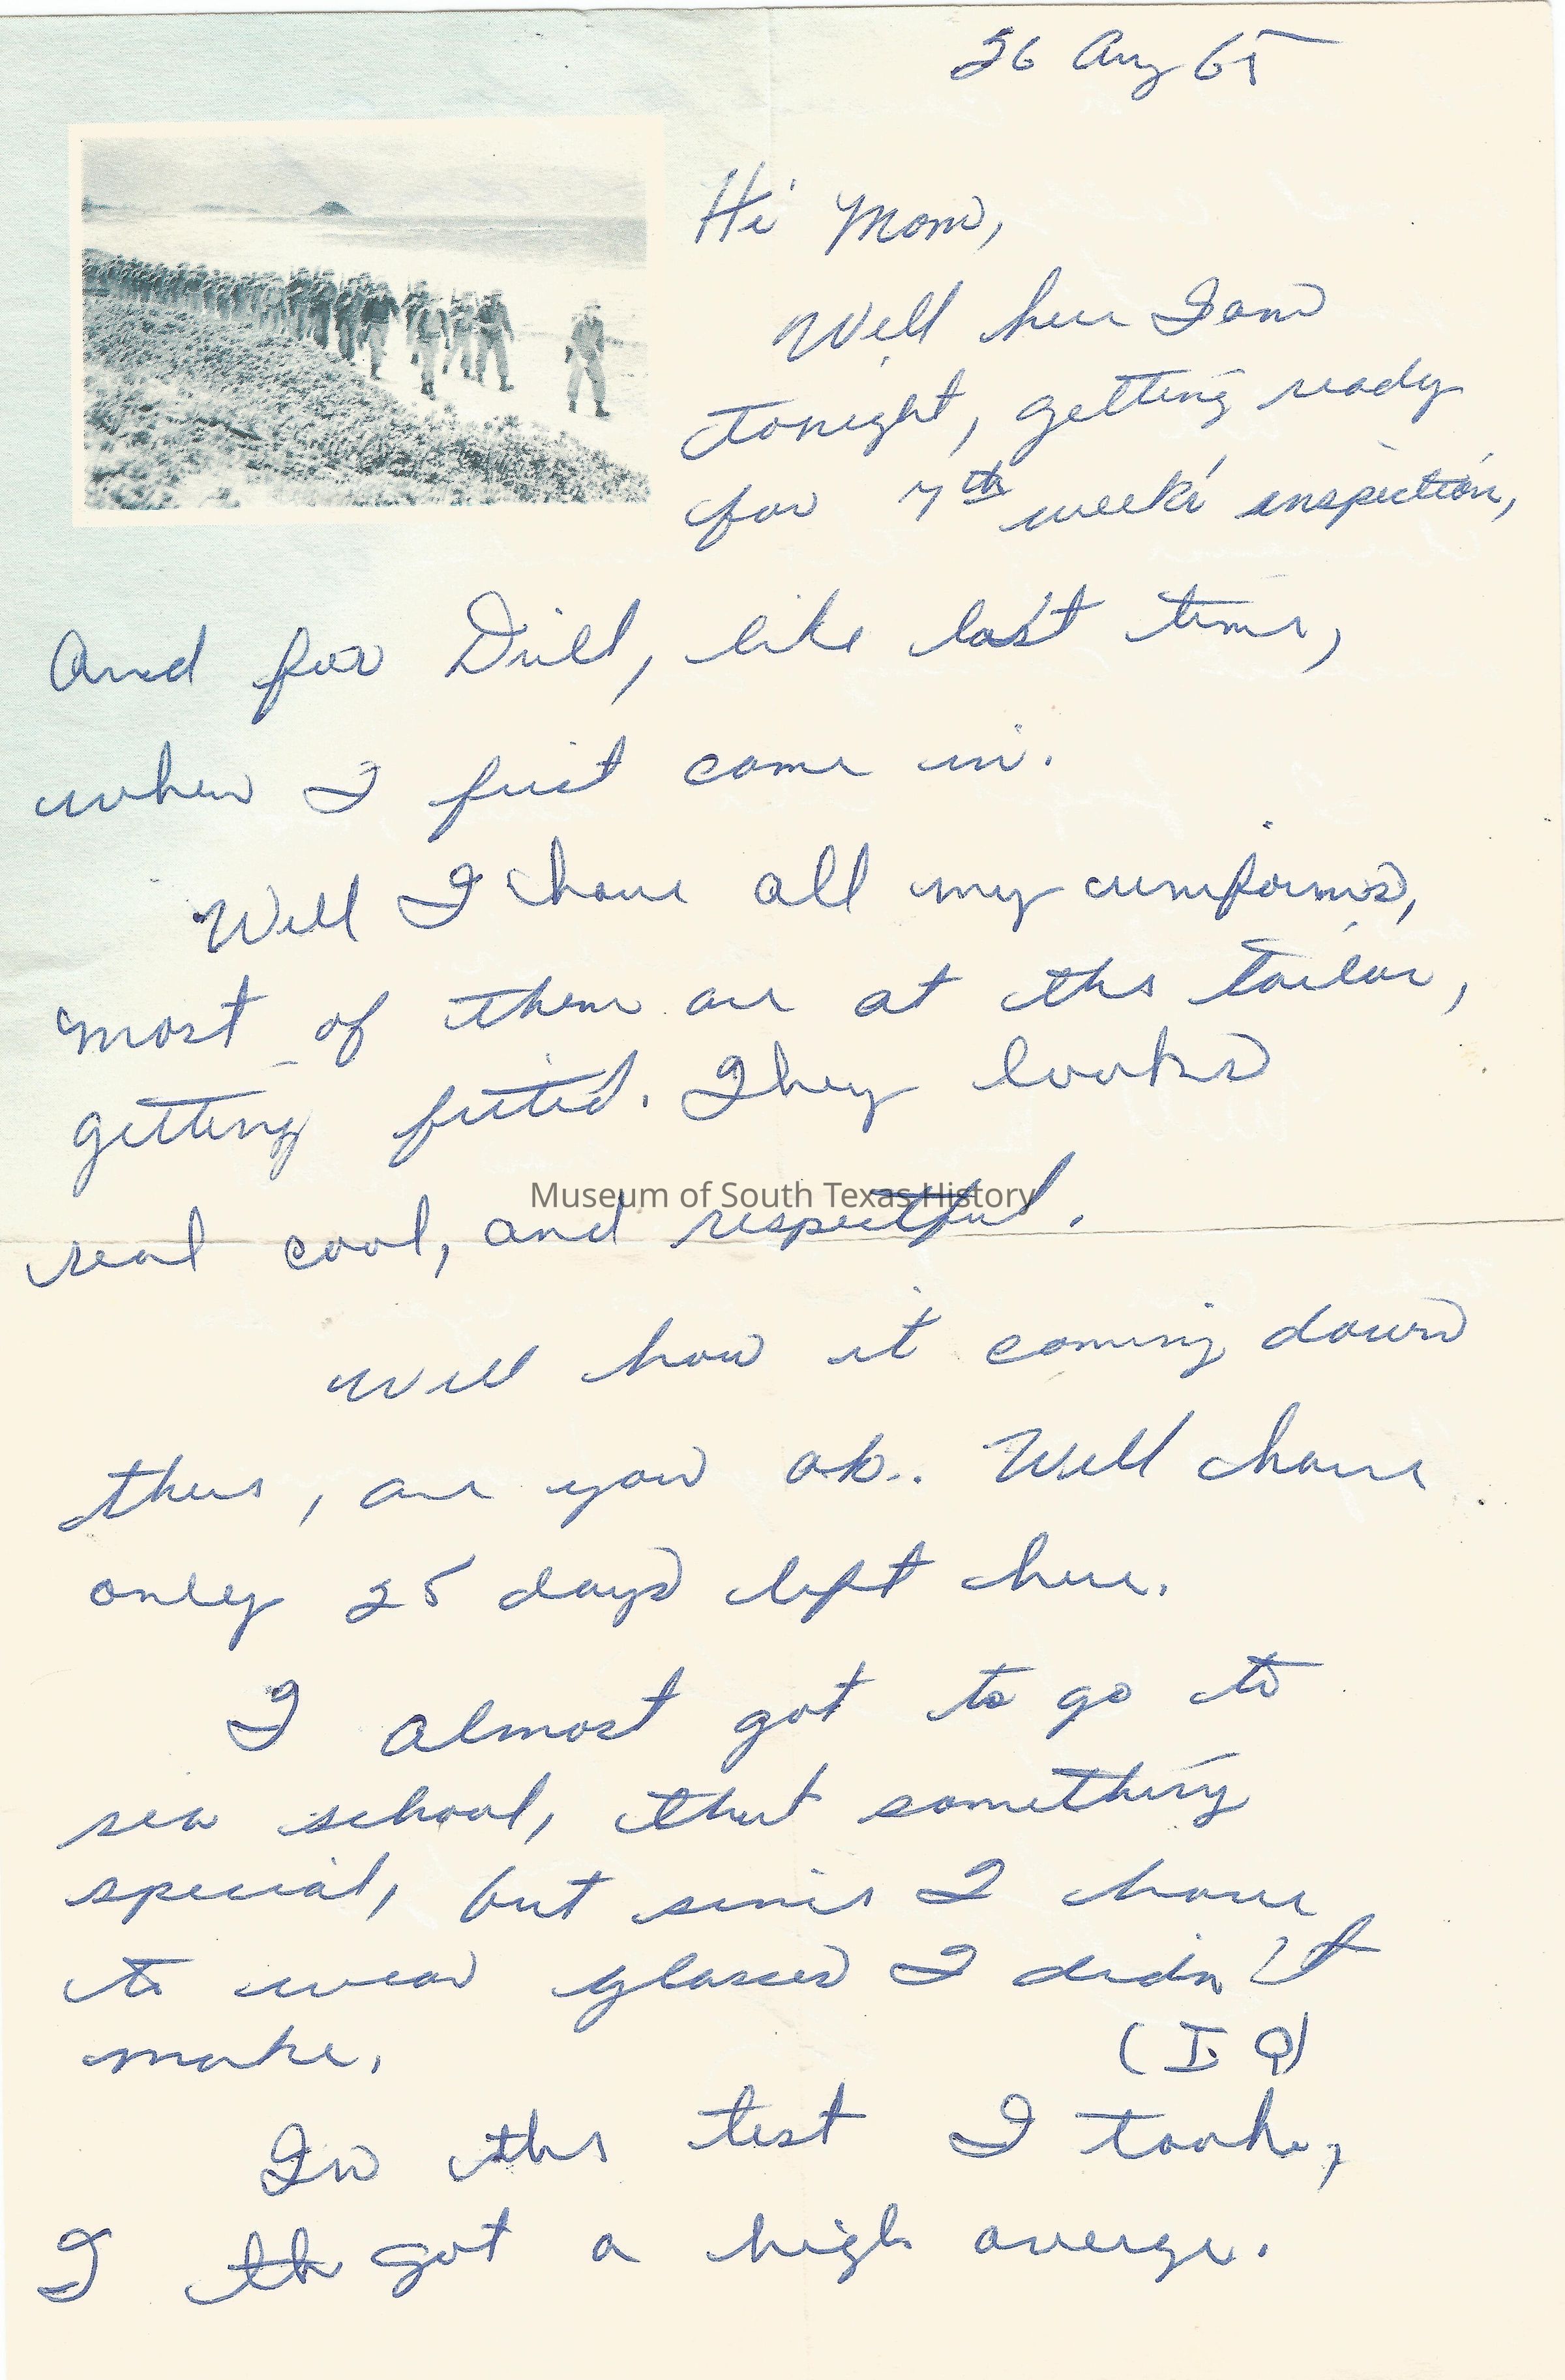 26 Aug 65
Hi Mom,
Well here I am
tonight, getting ready
for 7th week inspection,
And for Drill, like last time,
when I first came in.
Well I have all my uniforms,
most of them are at the tailor,
getting fitted. They looks
real cool, and respectful.
Museum of South Texas History
Well how it coming down
there, are you ok.. Well have
only 25 days left here.
I almost got to go to
sea school, that something
special, but since I have
to wear glasses I didn't
make.
(I.Q)
In the test I tooke,
I th got a high averge.